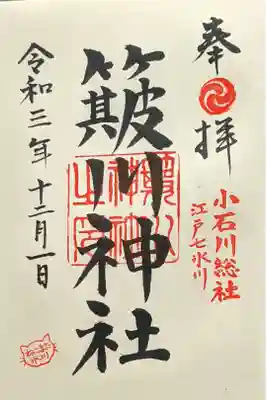 奉拝
小石川総社
江戸七氷川
簸川神社
令和三年十二月一日